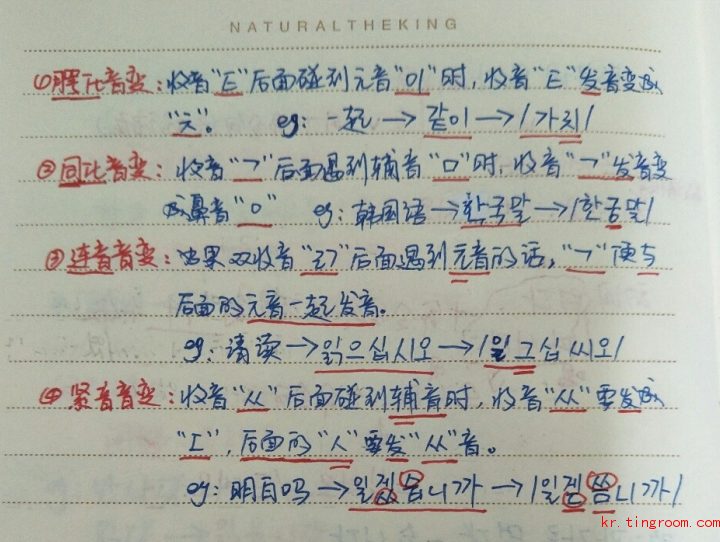 NATURALTHEKING
①腭化音变：收音“ㅌ”后面碰到元音“이”时，收音“ㅌ”发音变成
“ㅊ”。 eg：一起→같이→/가치/
②同化音变：收音“ㄱ”后面遇到辅音“ㅁ”时，收音“ㄱ”发音变
成鼻音“ㅇ” eg：韩国语→한국말→/한궁말/
③连音音变：如果双收音“ㄺ”后面遇到元音的话，“ㄱ”便与
后面的元音一起发音。
eg：请读→읽으십시오→/일그십씨오/
④紧音音变：收音“ㅆ”后面碰到辅音时，收音“ㅆ”要发成
“ㄷ”，后面的“ㅅ”要发“ㅆ”音。
eg：明白吗→일겠습니까→/일겓씀니까/
kr.tingroom.com